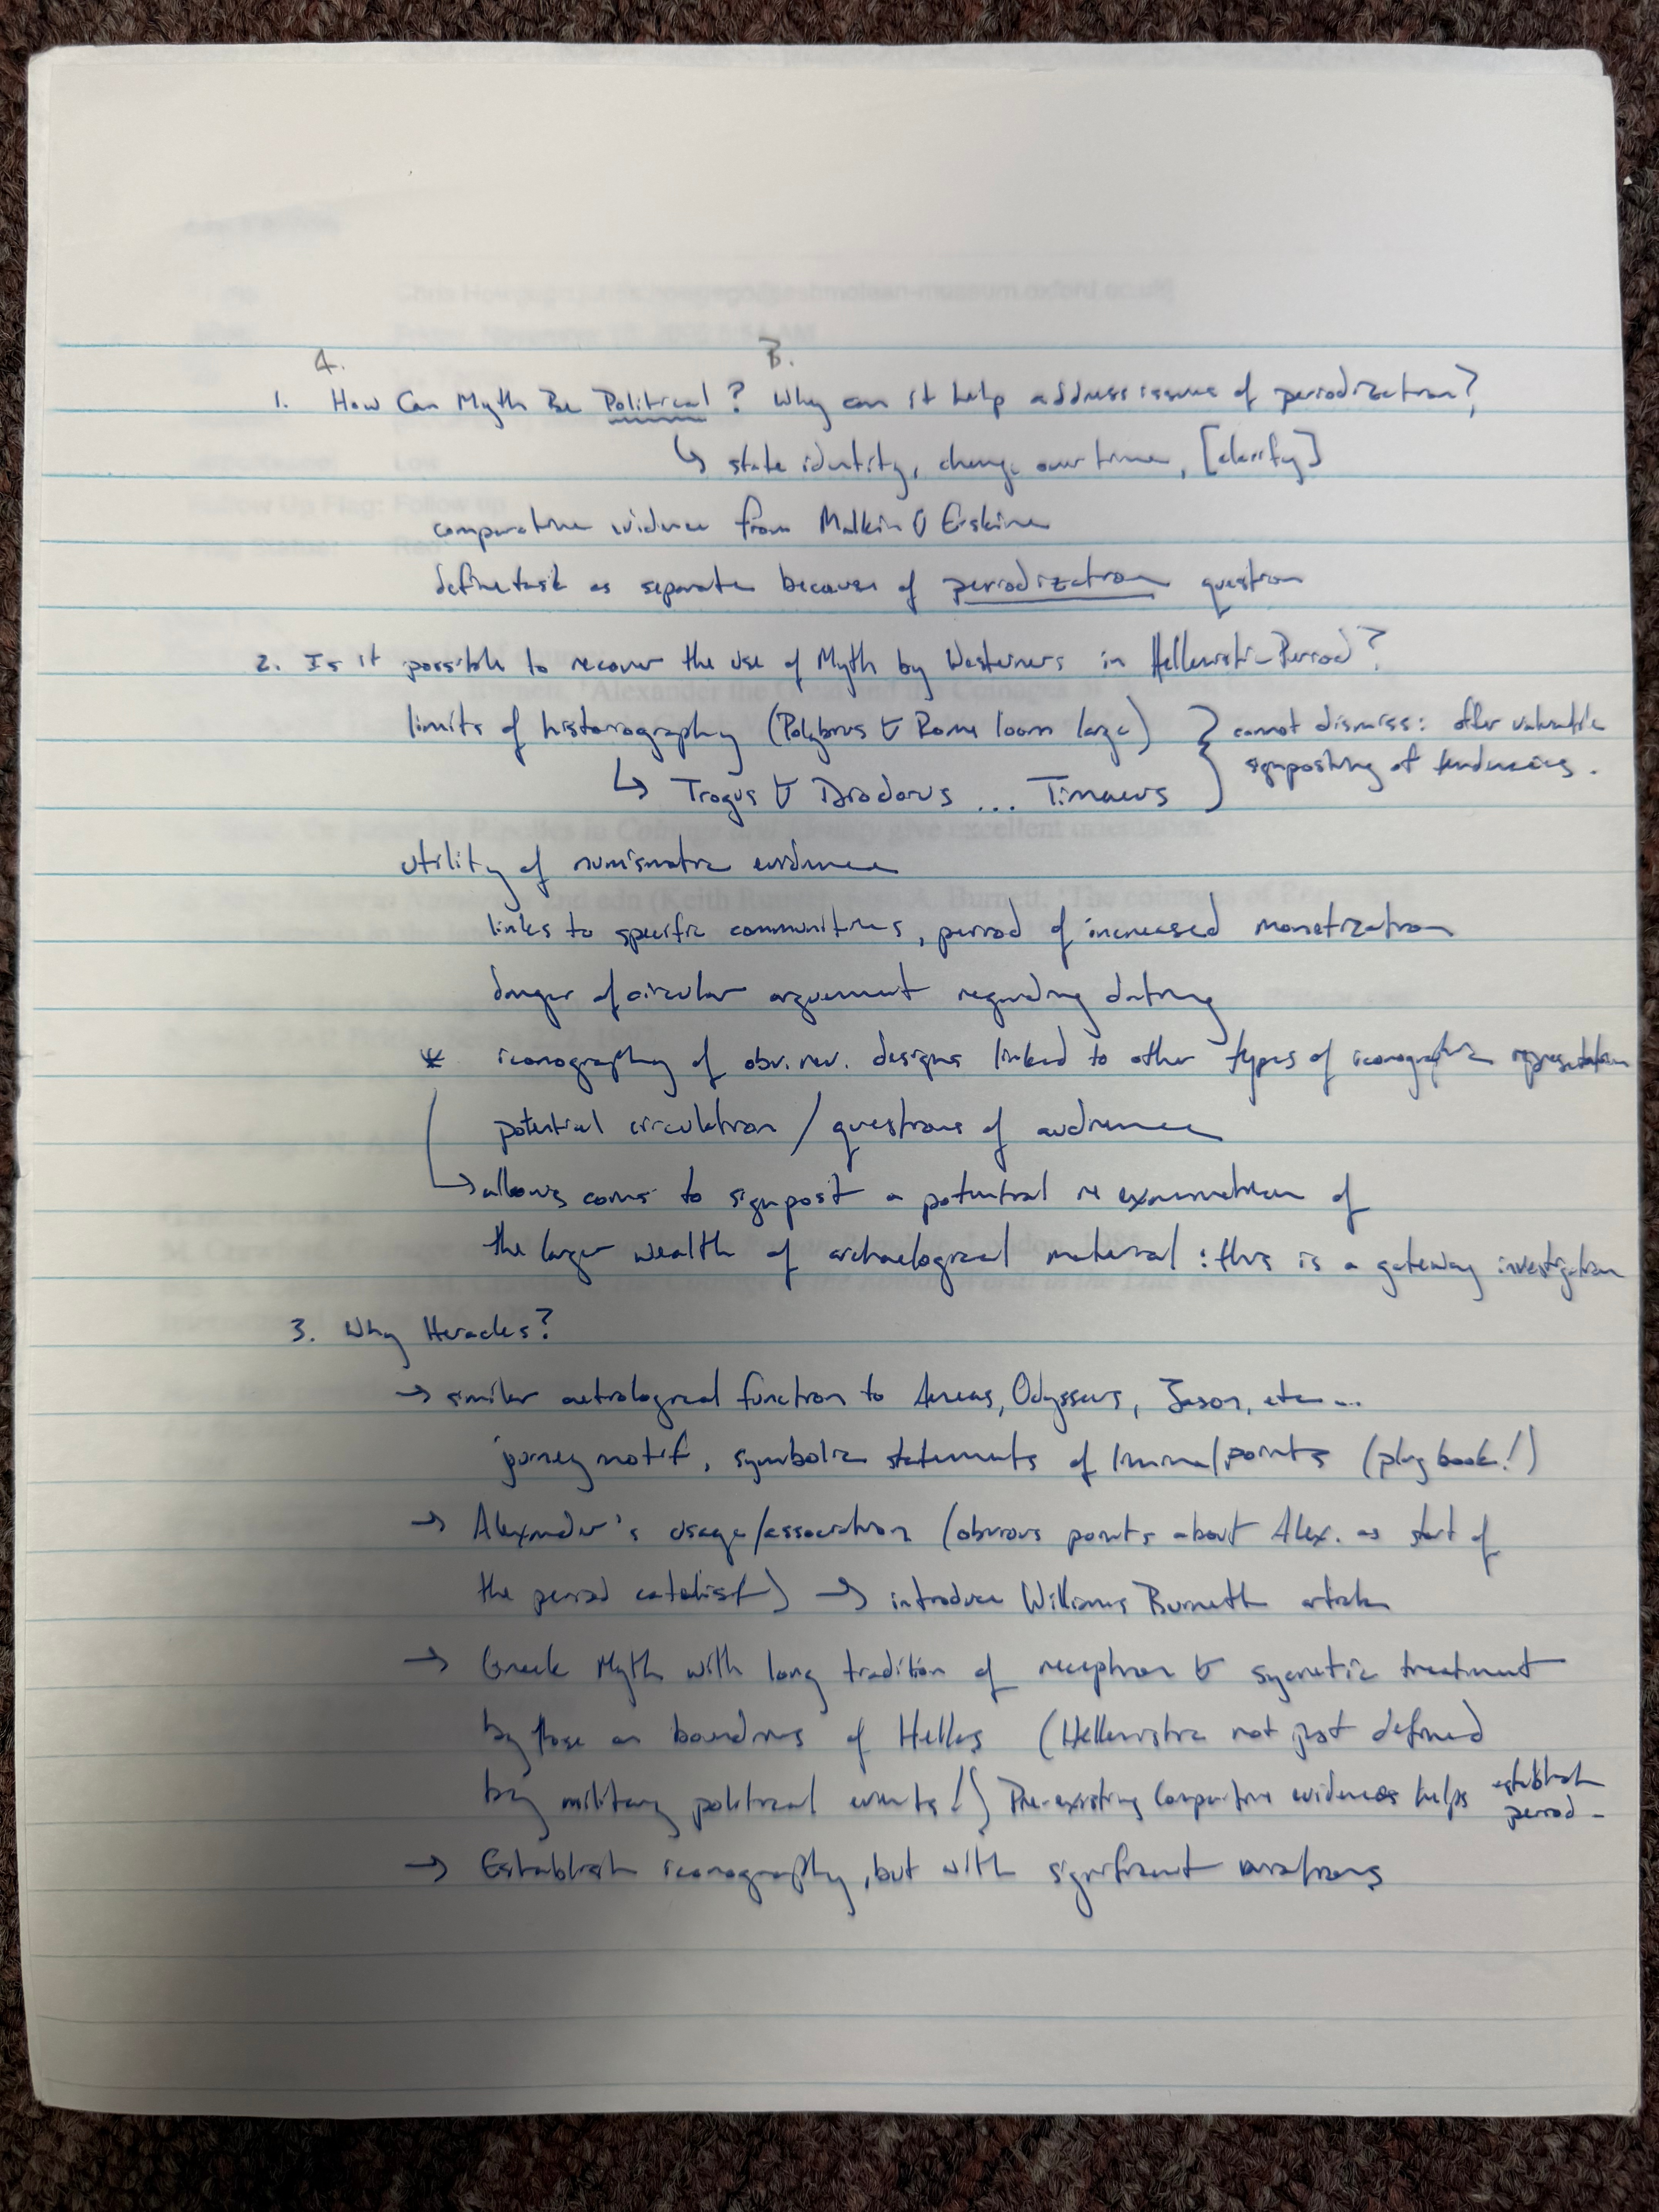 A. B.
1. How Can Myth Be Political? Why can it help address issues of periodization?
↳ state identity, change over time, [clarify]
comparative evidence from Malkin & Erskine
define task as separate because of periodization question
2. Is it possible to recover the use of Myth by Westerners in Hellenistic Period?
limits of historiography (Polybius & Rome loom large) } cannot dismiss: offer valuable
signposting of tendencies.
↳ Trogus & Diodorus ... Timaeus
utility of numismatic evidence
links to specific communities, period of increased monetization
danger of circular arguement regarding dating
* iconography of obv. rev. designs linked to other types of iconographic representation
potential circulation / questions of audience
→ allows coins to signpost a potential re examination of
the larger wealth of archaelogical material : this is a gateway investigation
3. Why Heracles?
→ similar aetiological function to Aeneas, Odysseus, Jason, etc...
journey motif, symbolic statements of liminal points (plug book!)
→ Alexander's usage/association (obvious points about Alex. as start of
the period catalist) → introduce Williams Burnett article
→ Greek Myth with long tradition of reception & sycretic treatment
by those on boundries of Hellas (Hellenistic not just defined
by military political events!) Pre-existing Comparative evidences helps establish
period -
→ Establish iconography, but with significant variations
Chris
Low
Follow Up Flag: Follow up